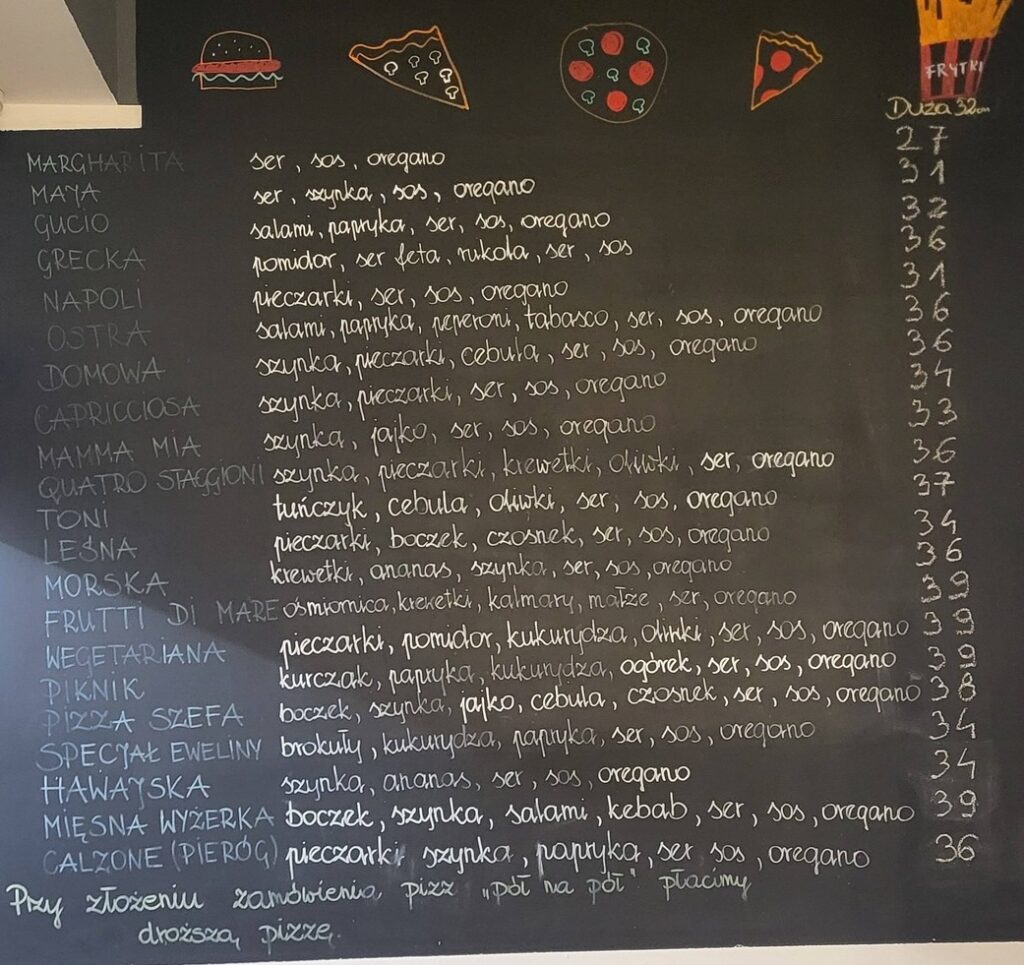 FRYTKI
Duża 32cm
MARGHARITA ser, sos, oregano 27
MAJA ser, szynka, sos, oregano 31
GUCIO salami, papryka, ser, sos, oregano 32
GRECKA pomidor, ser feta, rukola, ser, sos 36
NAPOLI pieczarki, ser, sos, oregano 31
OSTRA salami, papryka, peperoni, tabasco, ser, sos, oregano 36
DOMOWA szynka, pieczarki, cebula, ser, sos, oregano 36
CAPRICCIOSA szynka, pieczarki, ser, sos, oregano 34
MAMMA MIA szynka, jajko, ser, sos, oregano 33
QUATRO STAGGIONI szynka, pieczarki, krewetki, oliwki, ser, oregano 36
TONI tuńczyk, cebula, oliwki, ser, sos, oregano 37
LEŚNA pieczarki, boczek, czosnek, ser, sos, oregano 34
MORSKA krewetki, ananas, szynka, ser, sos, oregano 36
FRUTTI DI MARE ośmiornica, krewetki, kalmary, małże, ser, oregano 39
WEGETARIANA pieczarki, pomidor, kukurydza, oliwki, ser, sos, oregano 39
PIKNIK kurczak, papryka, kukurydza, ogórek, ser, sos, oregano 39
PIZZA SZEFA boczek, szynka, jajko, cebula, czosnek, ser, sos, oregano 38
SPECJAŁ EWELINY brokuły, kukurydza, papryka, ser, sos, oregano 34
HAWAJSKA szynka, ananas, ser, sos, oregano 34
MIĘSNA WYŻERKA boczek, szynka, salami, kebab, ser, sos, oregano 39
CALZONE (PIERÓG) pieczarki szynka, papryka, ser sos, oregano 36
Przy złożeniu zamówienia pizz „pół na pół" płacimy
droższą pizzę.